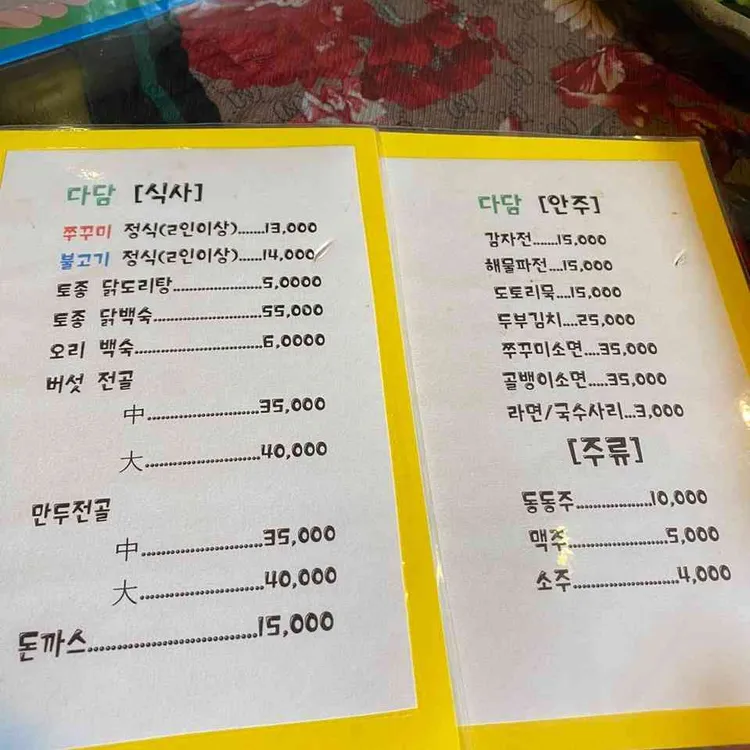 다담 [식사]
쭈꾸미 정식(2인이상).......13,000
불고기 정식(2인이상).......14,000
토종 닭도리탕..................5,0000
토종 닭백숙......................55,000
오리 백숙..........................6,0000
버섯 전골
中........................35,000
大........................40,000
만두전골
中........................35,000
大........................40,000
돈까스..............................15,000
다담 [안주]
감자전......15,000
해물파전....15,000
도토리묵....15,000
두부김치....25,000
쭈꾸미소면....35,000
골뱅이소면....35,000
라면/국수사리...3,000
[주류]
동동주................10,000
맥주....................5,000
소주......................4,000